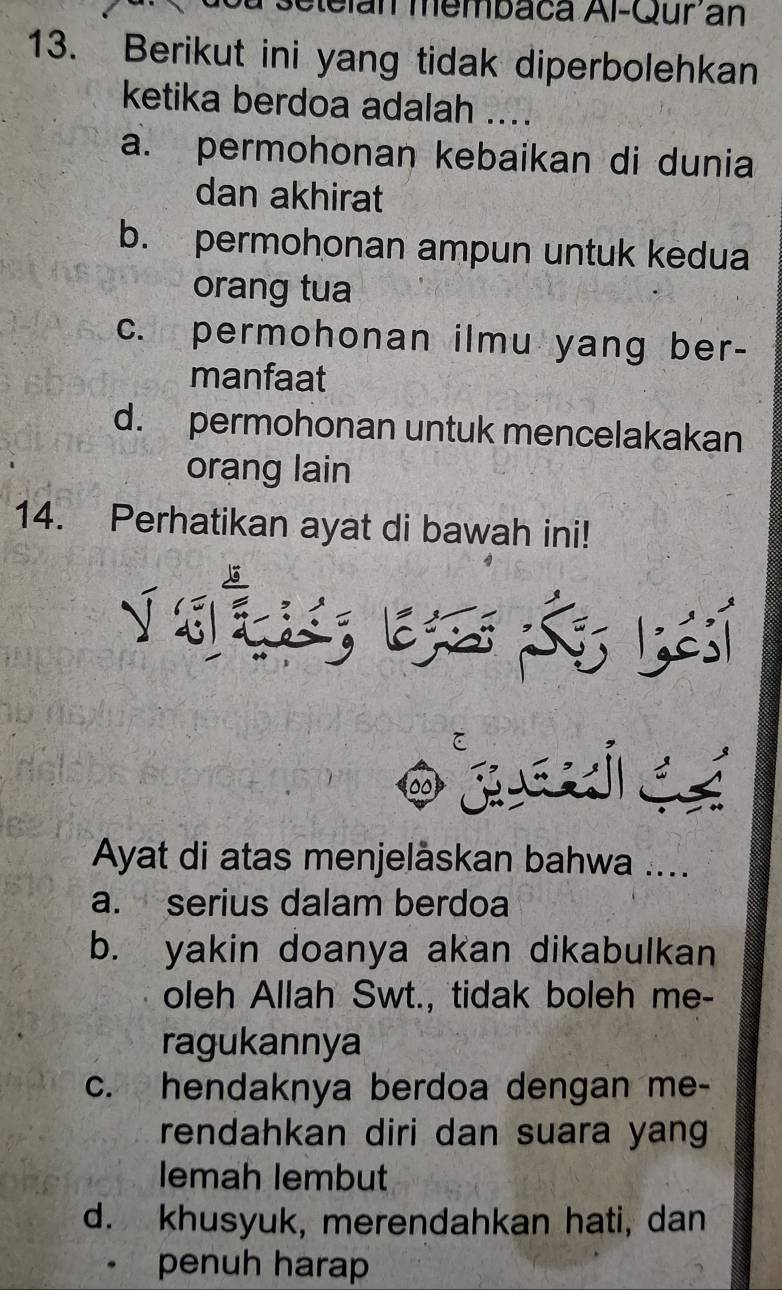 setelah membaca Al-Qur'an
13. Berikut ini yang tidak diperbolehkan
ketika berdoa adalah ....
a. permohonan kebaikan di dunia
dan akhirat
b. permohonan ampun untuk kedua
orang tua
c. permohonan ilmu yang ber-
manfaat
d. permohonan untuk mencelakakan
orang lain
14. Perhatikan ayat di bawah ini!
اُدْعُوْا رَبَّكُمْ تَضَرُّعًا وَّخُفْيَةًۗ اِنَّهٗ لَا
يُحِبُّ الْمُعْتَدِيْنَۚ ﴿٥٥﴾
Ayat di atas menjelaskan bahwa ....
a. serius dalam berdoa
b. yakin doanya akan dikabulkan
oleh Allah Swt., tidak boleh me-
ragukannya
c. hendaknya berdoa dengan me-
rendahkan diri dan suara yang
lemah lembut
d. khusyuk, merendahkan hati, dan
penuh harap